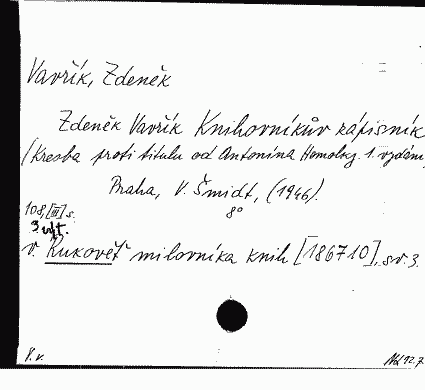 Vavřík, Zdeněk
Zdeněk Vavřík Knihovníkův zápisník
(Kresba proti titulu od Antonína Homolky. 1. vydání
Praha, V. Šmidt, (1946).
8°
108, [III] s.
3. výt.
v. Rukověť milovníka knih [186710], sv. 3.
8. v.